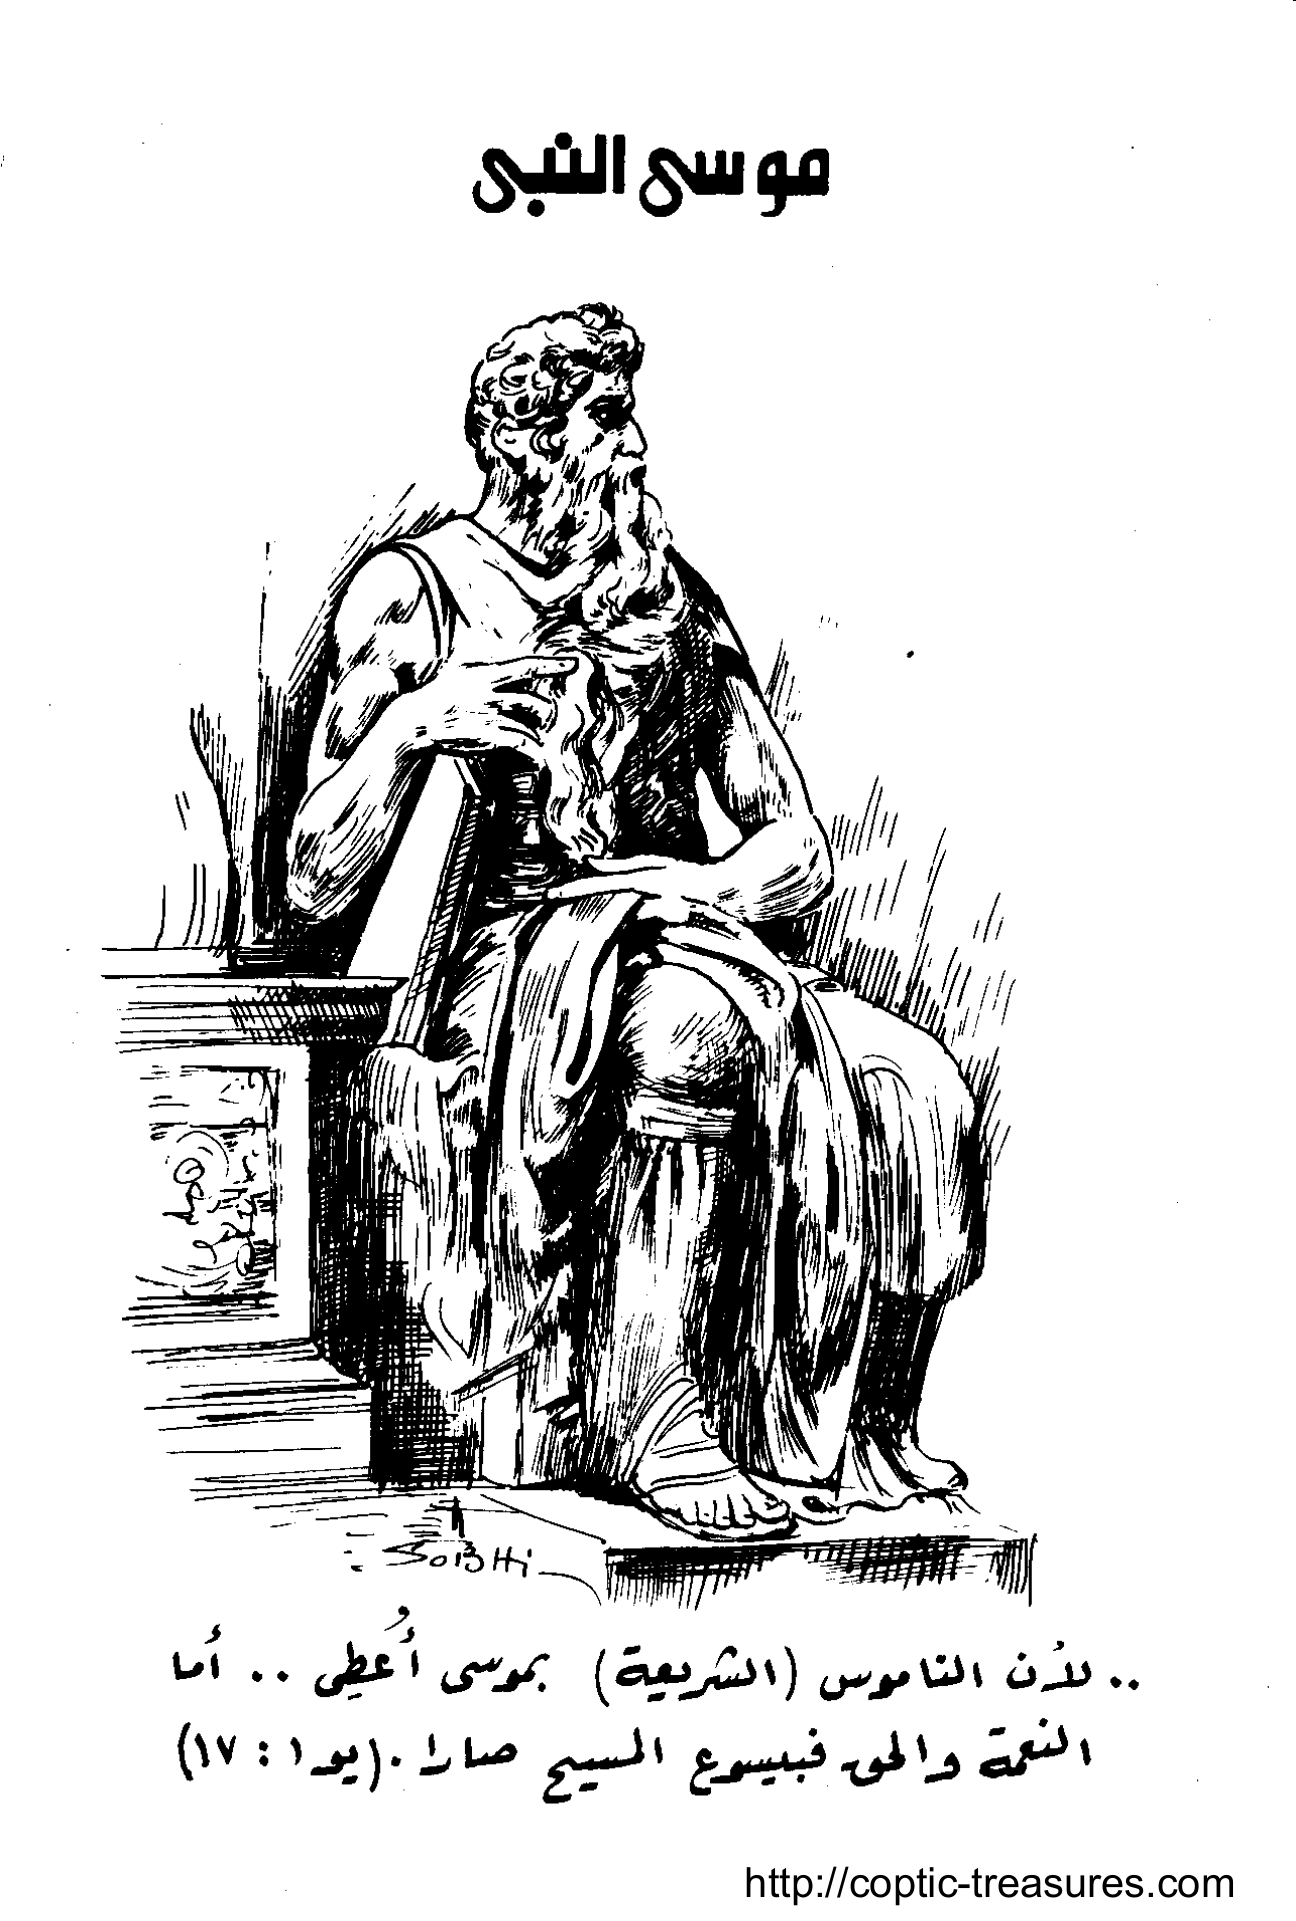 موسى النبى
Sobhi
.. لأن الناموس (الشريعة) بموسى أُعطِى .. أما
النعمة والحق فبيسوع المسيح صارا . (يو ١ : ١٧)
http://coptic-treasures.com